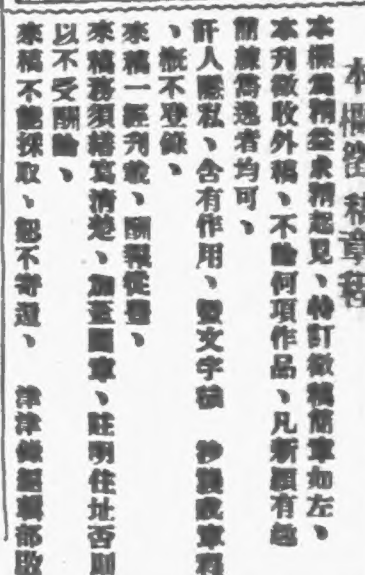 本欄徵稿章程
本欄爲精益求精起見、特訂徵稿簡章如左、
本刊歡收外稿、不論何項作品、凡新穎有趣
簡練雋逸者均可、
訐人隱私、含有作用、
、概不登錄、
來稿一經刊載、酬報從豐、
來稿務須繕寫清楚、加蓋圖章、註明住址否則
以不受酬論、
來稿不能採取、恕不寄還、